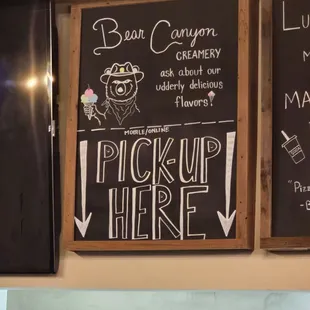 Bear Canyon
CREAMERY
ask about our
udderly delicious
flavors!
MOBILE/ONLINE
PICK-UP
HERE